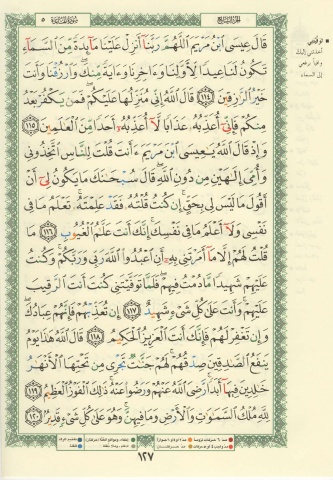 الجزء السابع
سورة المائدة ٥
قَالَ عِيسَى ٱبْنُ مَرْيَمَ ٱللَّهُمَّ رَبَّنَآ أَنزِلْ عَلَيْنَا مَآئِدَةً مِّنَ ٱلسَّمَآءِ
تَكُونُ لَنَا عِيدًا لِّأَوَّلِنَا وَءَاخِرِنَا وَءَايَةً مِّنكَ ۖ وَٱرْزُقْنَا وَأَنتَ
خَيْرُ ٱلرَّٰزِقِينَ ١١٤ قَالَ ٱللَّهُ إِنِّى مُنَزِّلُهَا عَلَيْكُمْ ۖ فَمَن يَكْفُرْ بَعْدُ
مِنكُمْ فَإِنِّىٓ أُعَذِّبُهُۥ عَذَابًا لَّآ أُعَذِّبُهُۥٓ أَحَدًا مِّنَ ٱلْعَٰلَمِينَ ١١٥
وَإِذْ قَالَ ٱللَّهُ يَٰعِيسَى ٱبْنَ مَرْيَمَ ءَأَنتَ قُلْتَ لِلنَّاسِ ٱتَّخِذُونِى
وَأُمِّىَ إِلَٰهَيْنِ مِن دُونِ ٱللَّهِ ۖ قَالَ سُبْحَٰنَكَ مَا يَكُونُ لِىٓ أَنْ
أَقُولَ مَا لَيْسَ لِى بِحَقٍّ ۚ إِن كُنتُ قُلْتُهُۥ فَقَدْ عَلِمْتَهُۥ ۚ تَعْلَمُ مَا فِى
نَفْسِى وَلَآ أَعْلَمُ مَا فِى نَفْسِكَ ۚ إِنَّكَ أَنتَ عَلَّٰمُ ٱلْغُيُوبِ ١١٦ مَا
قُلْتُ لَهُمْ إِلَّا مَآ أَمَرْتَنِى بِهِۦٓ أَنِ ٱعْبُدُوا۟ ٱللَّهَ رَبِّى وَرَبَّكُمْ ۚ وَكُنتُ
عَلَيْهِمْ شَهِيدًا مَّا دُمْتُ فِيهِمْ ۖ فَلَمَّا تَوَفَّيْتَنِى كُنتَ أَنتَ ٱلرَّقِيبَ
عَلَيْهِمْ ۚ وَأَنتَ عَلَىٰ كُلِّ شَىْءٍ شَهِيدٌ ١١٧ إِن تُعَذِّبْهُمْ فَإِنَّهُمْ عِبَادُكَ ۖ
وَإِن تَغْفِرْ لَهُمْ فَإِنَّكَ أَنتَ ٱلْعَزِيزُ ٱلْحَكِيمُ ١١٨ قَالَ ٱللَّهُ هَٰذَا يَوْمُ
يَنفَعُ ٱلصَّٰدِقِينَ صِدْقُهُمْ ۚ لَهُمْ جَنَّٰتٌ تَجْرِى مِن تَحْتِهَا ٱلْأَنْهَٰرُ
خَٰلِدِينَ فِيهَآ أَبَدًا ۚ رَّضِىَ ٱللَّهُ عَنْهُمْ وَرَضُوا۟ عَنْهُ ۚ ذَٰلِكَ ٱلْفَوْزُ ٱلْعَظِيمُ ١١٩
لِلَّهِ مُلْكُ ٱلسَّمَٰوَٰتِ وَٱلْأَرْضِ وَمَا فِيهِنَّ ۚ وَهُوَ عَلَىٰ كُلِّ شَىْءٍ قَدِيرٌۢ ١٢٠
توفيتني
أخذتني إليك
وافياً برفعي
إلى السماء
١٢٧